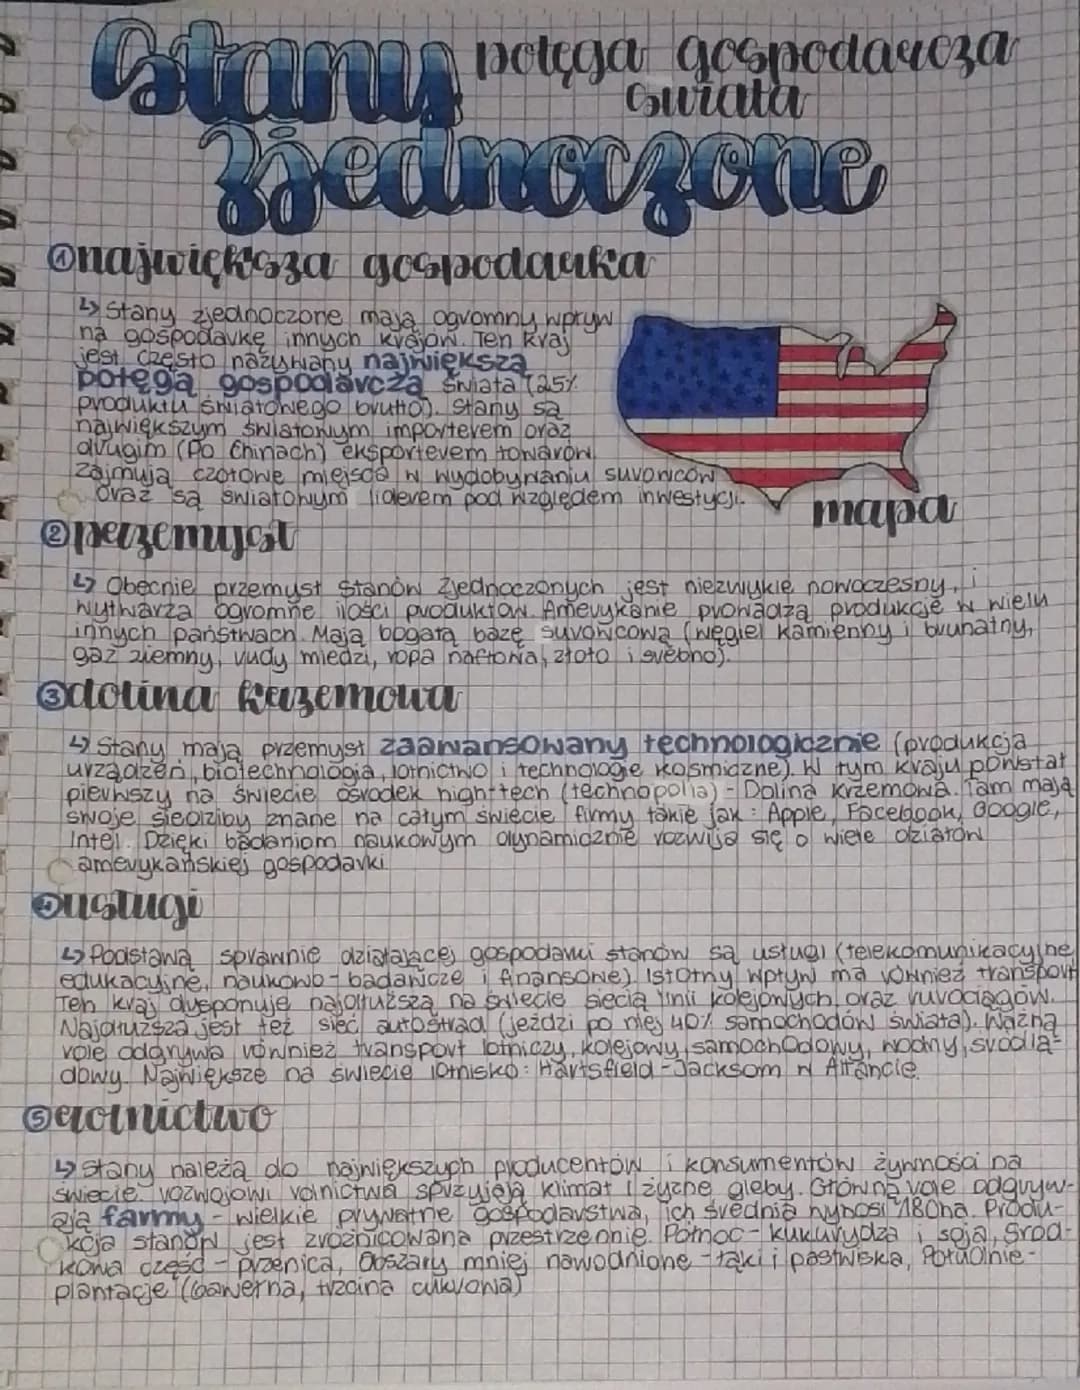 Stany potęga gospodarcza
świata
Zjednoczone
① największa gospodarka
↳ Stany zjednoczone mają ogromny wpływ
na gospodarkę innych krajów. Ten kraj
jest często nazywany największą
potęgą gospodarczą świata (25%
produktu światowego brutto). Stany są
największym światowym importerem oraz
drugim (Po Chinach) eksporterem towarów.
zajmują czołowe miejsce w wydobywaniu surowców
oraz są światowym liderem pod względem inwestycji.
mapa
② przemysł
↳ Obecnie przemysł Stanów Zjednoczonych jest niezwykle nowoczesny, i
wytwarza ogromne ilości produktów. Amerykanie prowadzą produkcję w wielu
innych państwach. Mają bogatą bazę surowcową (węgiel kamienny i brunatny,
gaz ziemny, rudy miedzi, ropa naftowa, złoto i srebno).
③ dolina krzemowa
↳ Stany mają przemysł zaawansowany technologicznie (produkcja
urządzeń, biotechnologia, lotnictwo i technologie kosmiczne). W tym kraju powstał
pierwszy na świecie ośrodek high-tech (technopolia) - Dolina Krzemowa. Tam mają
swoje siedziby znane na całym świecie firmy takie jak: Apple, Facebook, Google,
Intel. Dzięki badaniom naukowym dynamicznie rozwija się o wiele działów
amerykańskiej gospodarki
④ usługi
↳ Podstawą sprawnie działającej gospodarki stanów są usługi (telekomunikacyjne,
edukacyjne, naukowo-badawcze i finansowe). Istotny wpływ ma również transport
Ten kraj dysponuje najdłuższą na świecie siecią linii kolejowych oraz rurociągów.
Najdłuższa jest też sieć autostrad (jeździ po niej 40% samochodów świata). Ważną
rolę odgrywa również transport lotniczy, kolejowy, samochodowy, wodny, śródlą-
dowy. Największe na świecie lotnisko: Hartsfield-Jacksom w Atlancie.
⑤ rolnictwo
↳ Stany należą do największych producentów i konsumentów żywności na
świecie. rozwojowi rolnictwa sprzyjają klimat i żyzne gleby. Główną rolę odgryw-
ają farmy - wielkie prywatne gospodarstwa, ich średnia wynosi 180ha. Produ-
kcja stanów jest zróżnicowana przestrzennie. Północ - kukurydza i soja, Środ-
kowa część - przenica, Obszary mniej nawodnione - łąki i pastwiska, Południe -
plantacje (bawełna, trzcina cukrowa)